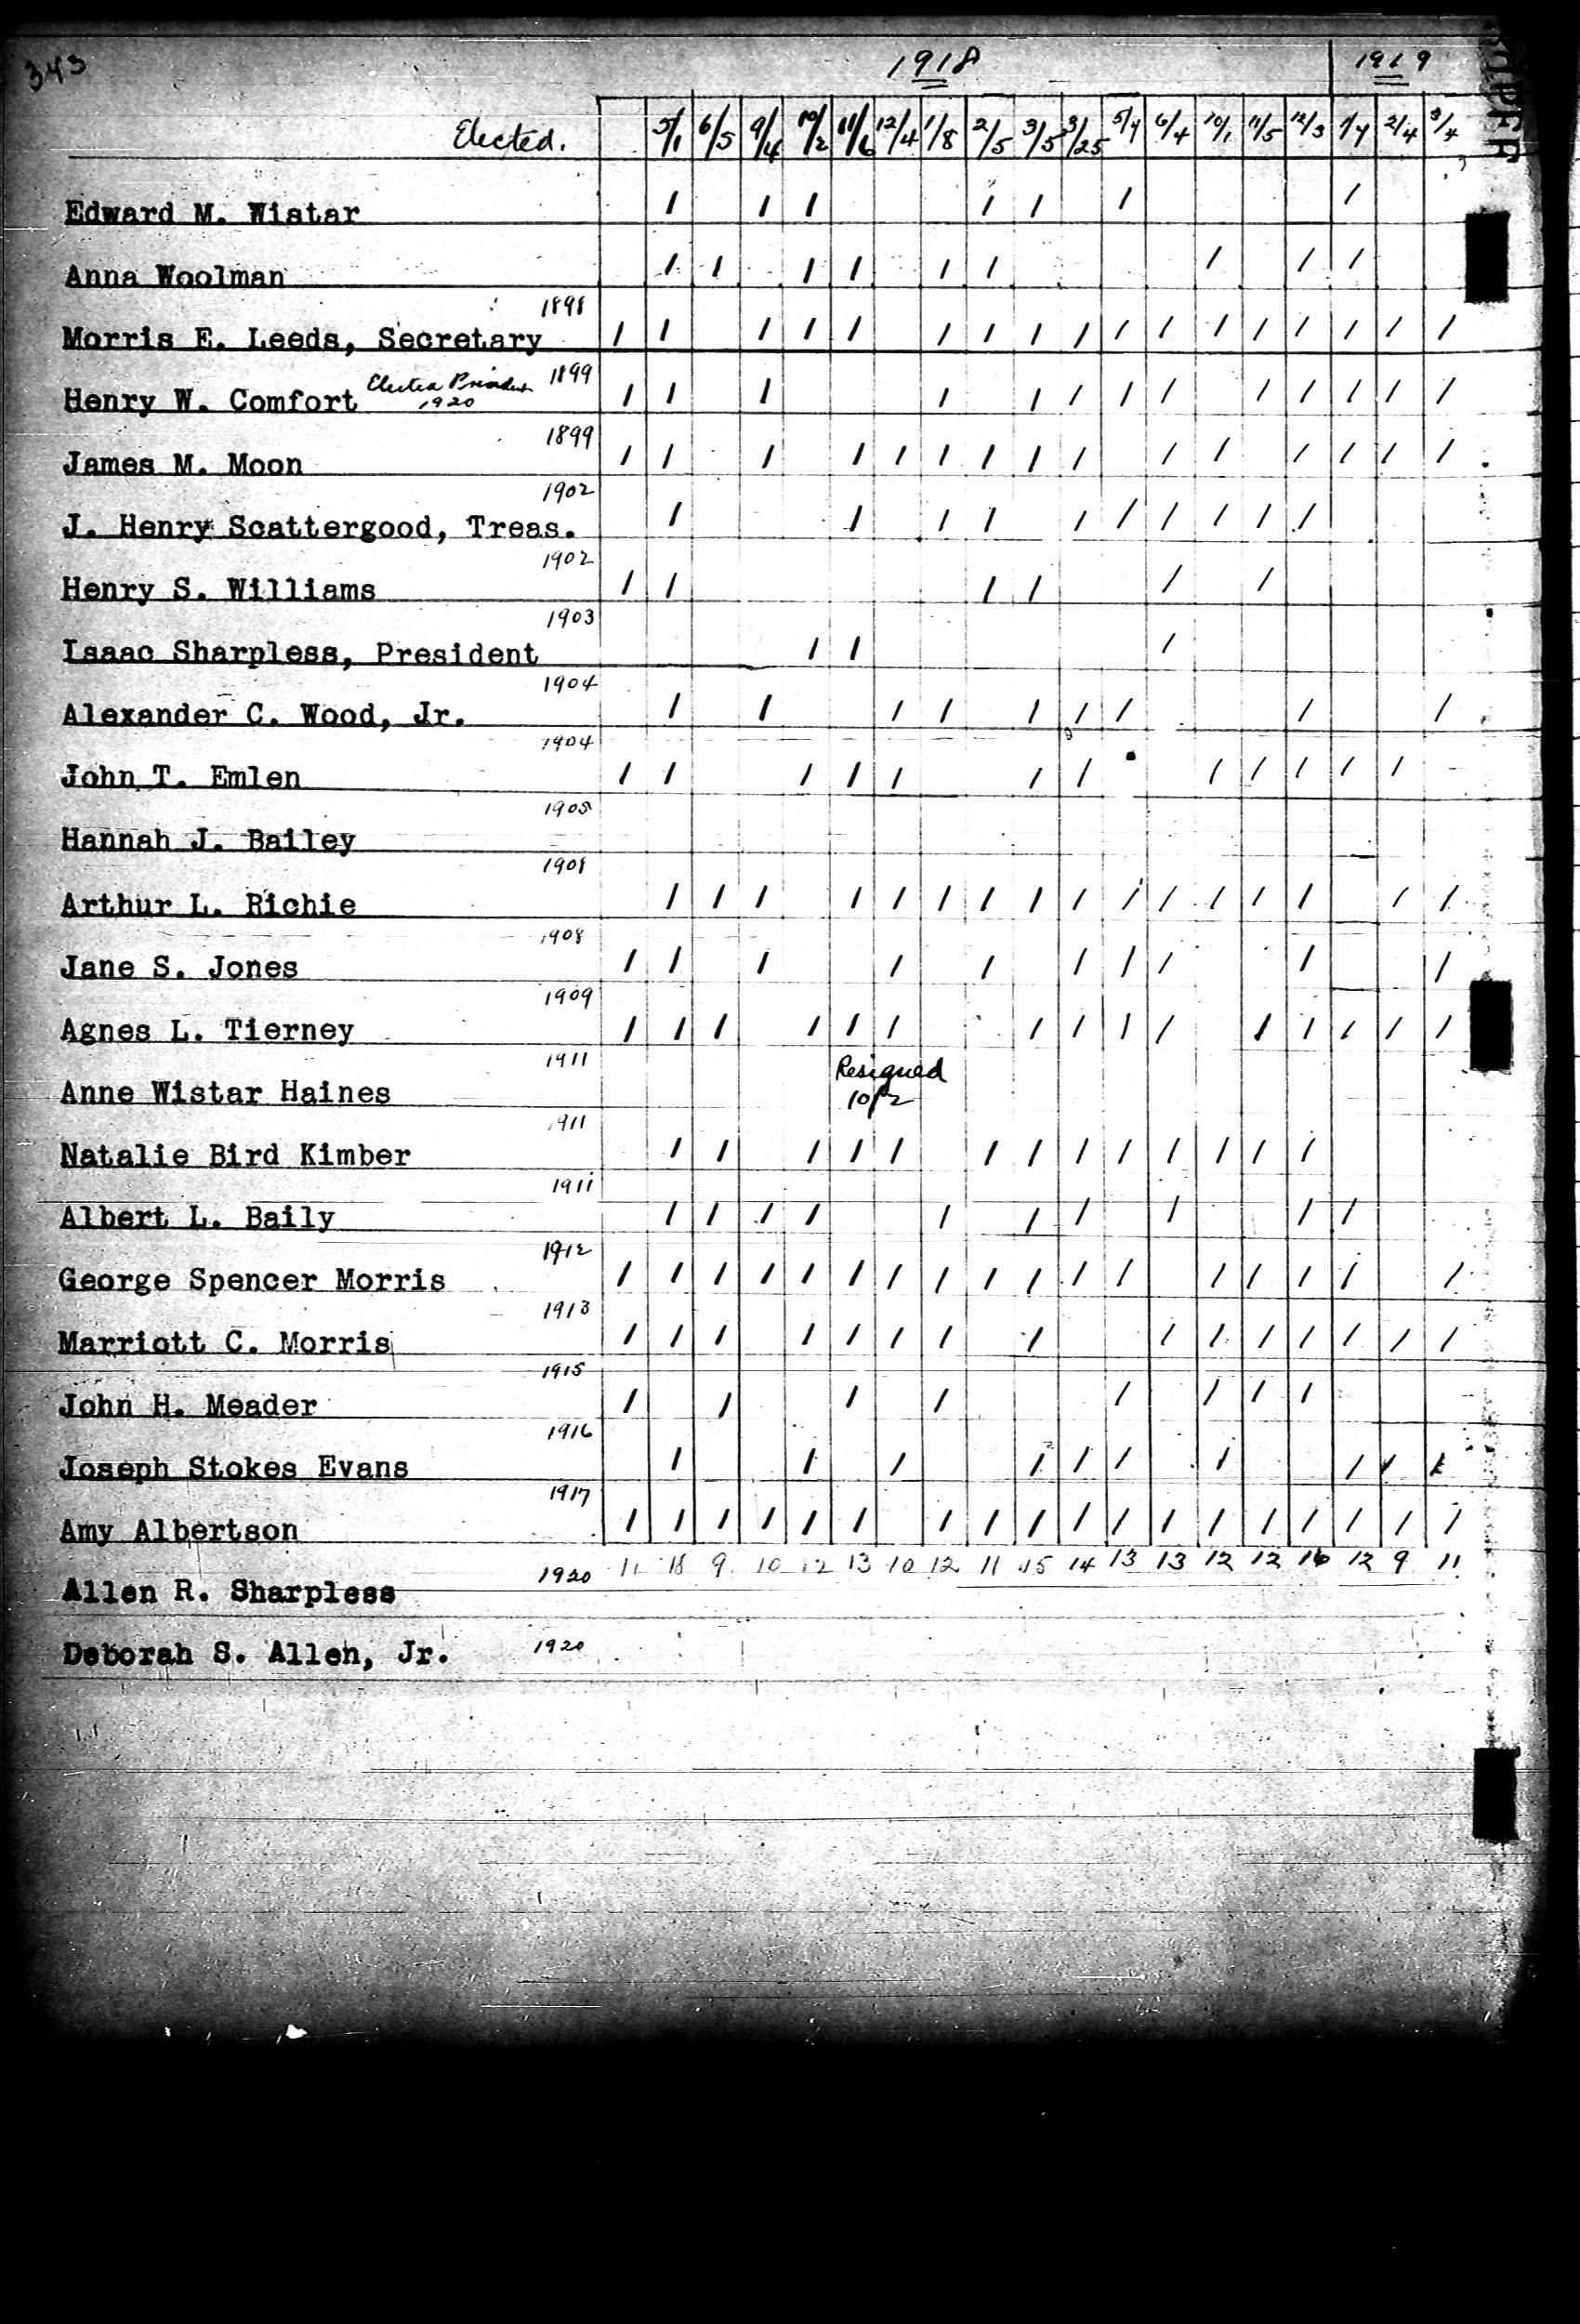 343
1918 1919
Elected. 5/1 6/5 9/4 10/2 11/6 12/4 1/8 2/5 3/5 3/25 5/7 6/4 10/1 11/5 12/3 1/7 2/4 3/4
Edward M. Wistar / / / / / / /
Anna Woolman / / / / / / / / /
1898
Morris E. Leeds, Secretary / / / / / / / / / / / / / / / / /
Elected President 1899
Henry W. Comfort 1920 / / / / / / / / / / / / /
1899
James M. Moon / / / / / / / / / / / / / / /
1902
J. Henry Scattergood, Treas. / / / / / / / / / /
1902
Henry S. Williams / / / / / /
1903
Isaac Sharpless, President / / /
1904
Alexander C. Wood, Jr. / / / / / / / / /
1904
John T. Emlen / / / / / / / / / / / /
1905
Hannah J. Bailey
1908
Arthur L. Richie / / / / / / / / / / / / / / / /
1908
Jane S. Jones / / / / / / / / / /
1909
Agnes L. Tierney / / / / / / / / / / / / / / /
1911 Resigned
Anne Wistar Haines 10/2
1911
Natalie Bird Kimber / / / / / / / / / / / / /
1911
Albert L. Baily / / / / / / / / / /
1912
George Spencer Morris / / / / / / / / / / / / / / / / /
1913
Marriott C. Morris / / / / / / / / / / / / / / /
1915
John H. Meader / / / / / / / /
1916
Joseph Stokes Evans / / / / / / / / / /
1917
Amy Albertson / / / / / / / / / / / / / / / / / /
1920 11 18 9 10 12 13 10 12 11 15 14 13 13 12 12 16 12 9 11
Allen R. Sharpless
Deborah S. Allen, Jr. 1920